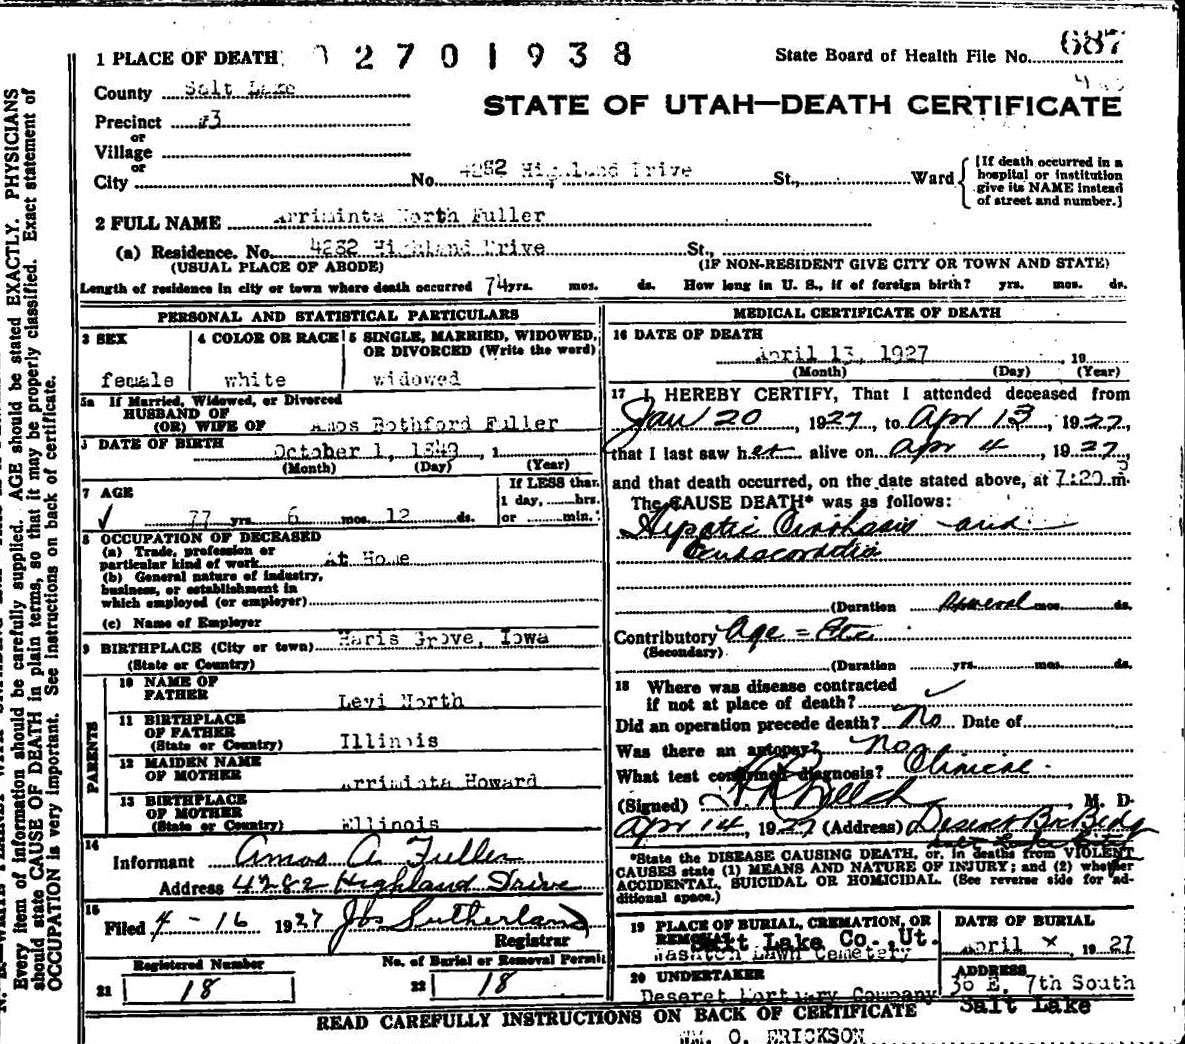 1 PLACE OF DEATH 02701938 State Board of Health File No. 687
County Salt Lake
STATE OF UTAH—DEATH CERTIFICATE
Precinct #3
or
Village
or
City No. 4282 Highland Drive St., Ward
[If death occurred in a
hospital or institution
give its NAME instead
of street and number.]
2 FULL NAME Arriminta North Fuller
(a) Residence. No. 4282 Highland Drive St.,
(USUAL PLACE OF ABODE) (IF NON-RESIDENT GIVE CITY OR TOWN AND STATE)
Length of residence in city or town where death occurred 74 yrs. mos. ds. How long in U. S., if of foreign birth? yrs. mos. ds.
PERSONAL AND STATISTICAL PARTICULARS
3 SEX
female
4 COLOR OR RACE
white
5 SINGLE, MARRIED, WIDOWED,
OR DIVORCED (Write the word)
widowed
5a If Married, Widowed, or Divorced
HUSBAND OF
(OR) WIFE OF Amos Bothford Fuller
DATE OF BIRTH October 1, 1849, 1
(Month) (Day) (Year)
7 AGE
77 yrs. 6 mos. 12 ds.
If LESS than
1 day, hrs.
or min.
8 OCCUPATION OF DECEASED
(a) Trade, profession or
particular kind of work At Home
(b) General nature of industry,
business, or establishment in
which employed (or employer)
(c) Name of Employer
9 BIRTHPLACE (City or town) Haris Grove, Iowa
(State or Country)
PARENTS
10 NAME OF
FATHER Levi North
11 BIRTHPLACE
OF FATHER
(State or Country) Illinois
12 MAIDEN NAME
OF MOTHER Arriminta Howard
13 BIRTHPLACE
OF MOTHER
(State or Country) Ellinois
14
Informant Amos A. Fuller
Address 4282 Highland Drive
15
Filed 4-16 1927 Jos Sutherland
Registrar
Registered Number No. of Burial or Removal Permit
21 18 22 18
MEDICAL CERTIFICATE OF DEATH
16 DATE OF DEATH
April 13, 1927, 19
(Month) (Day) (Year)
17 I HEREBY CERTIFY, That I attended deceased from
Jan 20, 1927, to Apr 13, 1927,
that I last saw her alive on Apr 4, 1927,
and that death occurred, on the date stated above, at 7:20 m.
The CAUSE DEATH* was as follows:
Hepatic Cirrhosis and
(Duration Several mos. ds.
Contributory Age = Etc.
(Secondary)
(Duration yrs. mos. ds.
18 Where was disease contracted
if not at place of death?
Did an operation precede death? No Date of
Was there an autopsy? No
What test confirmed diagnosis? Clinical.
(Signed) M. D.
Apr 14, 1927 (Address) Deseret Bk Bldg
*State the DISEASE CAUSING DEATH, or, in deaths from VIOLENT
CAUSES state (1) MEANS AND NATURE OF INJURY; and (2) whether
ACCIDENTAL, SUICIDAL OR HOMICIDAL. (See reverse side for ad-
ditional space.)
19 PLACE OF BURIAL, CREMATION, OR
REMOVAL Salt Lake Co., Ut.
Washton Lawn Cemetery
DATE OF BURIAL
April x, 1927
20 UNDERTAKER
Deseret Mortuary Company
ADDRESS
36 E. 7th South
Salt Lake
READ CAREFULLY INSTRUCTIONS ON BACK OF CERTIFICATE
WM. O. ERICKSON
Every item of information should be carefully supplied. AGE should be stated EXACTLY. PHYSICIANS
should state CAUSE OF DEATH in plain terms, so that it may be properly classified. Exact statement of
OCCUPATION is very important. See instructions on back of certificate.